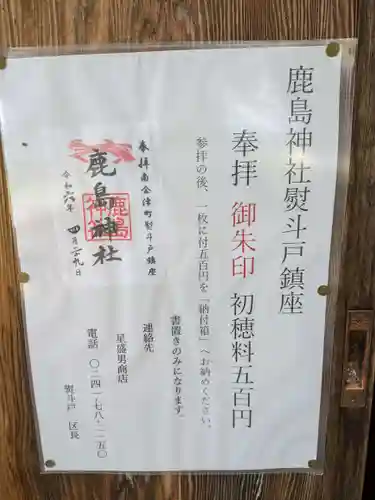 鹿島神社熨斗戸鎮座
奉拝 御朱印 初穂料五百円
参拝の後、一枚に付五百円を「納付箱」へお納めください。
書置きのみになります。
連絡先
星盛男商店
電話 〇二四一-七八-二一五〇
熨斗戸 区長
奉拝 南会津町熨斗戸鎮座
鹿島神社
鹿島神
令和六年 四月二十九日